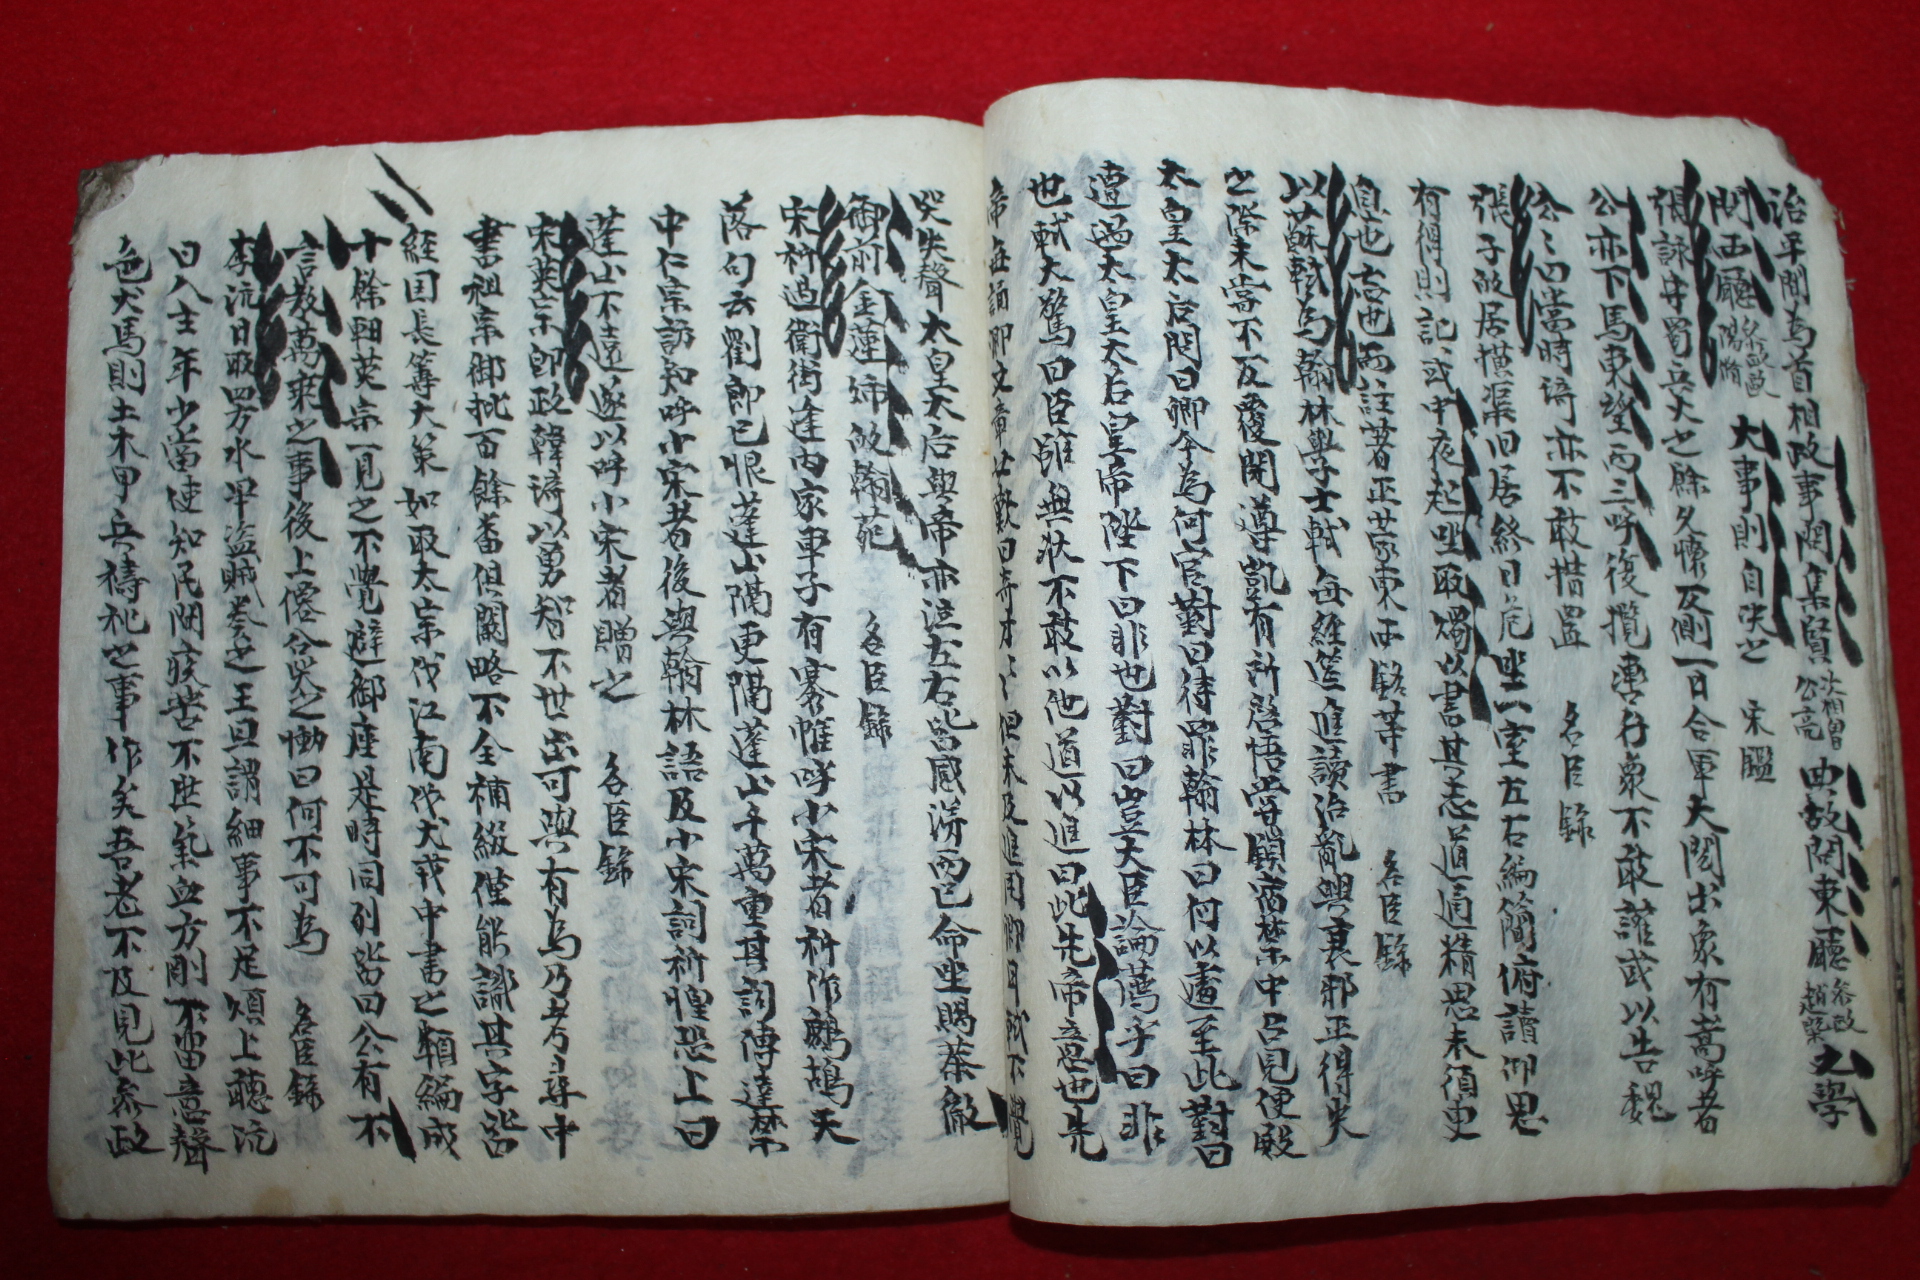 治平間爲首相政事問集賢 次相曾公亮 典故問東廳 參政趙槩 文學
問西廳 參政歐陽脩 大事則自決之 宋鑑
張詠守蜀兵火之餘人懷反側一日合軍大閱出衆有嵩呼者
公亦下馬東望而三呼復攬轡行衆不敢讙或以告魏
公公曰當時琦亦不敢措置 名臣錄
張子故居橫渠旧居終日危坐一室左右編簡俯讀仰思
有得則記之或中夜起坐取燭以書其志道通精思未須臾
息也
以蘇軾爲翰林學士軾每經筵進讀治亂興衰邪正得失
之際未嘗不反覆開導凱有所啓悟嘗鎖宿禁中召見便殿
太皇太后問曰卿今為何官對曰待罪翰林曰何以遽至此對曰
遭過太皇太后皇帝陛下曰非也對曰豈大臣論薦乎曰非
也軾大驚曰臣雖無狀不敢以他道以進曰此先帝意也先
帝每誦卿文章必歎曰奇才奇才但未及進用卿耳軾不覺
哭失聲太皇太后與帝亦泣左右皆感涕而已命坐賜茶徹
御前金蓮炬歸翰苑 名臣錄
宋祁過衛街逢內家車子有褰帷呼小宋者祁作鷓鴣天
落句云劉郎已恨蓬山隔更隔蓬山千萬重其詞傳達禁
中仁宗訪知呼小宋者後與翰林語及小宋詞祁惶恐上曰
蓬山不遠遂以呼小宋者贈之 名臣錄
宋英宗卽政韓琦以勇智不世出可與有為乃考尋中
書祖宗御批百餘番俱闕略不全補綴僅能識其字皆
經国長筭大策如取太宗伐江南伐犬戎中書之類編成
十餘軸英宗一見之不覺避御座是時同列皆曰公有不
言敎萬乘之事後上僊公哭之慟曰何不可為 名臣錄
李沆日取四方水旱盜賊奏之王旦謂細事不足煩上聽沆
曰人主年少當使知民間疾苦不然氣血方剛不留意聲
色犬馬則土木甲兵禱祀之事作矣吾老不及見此參政